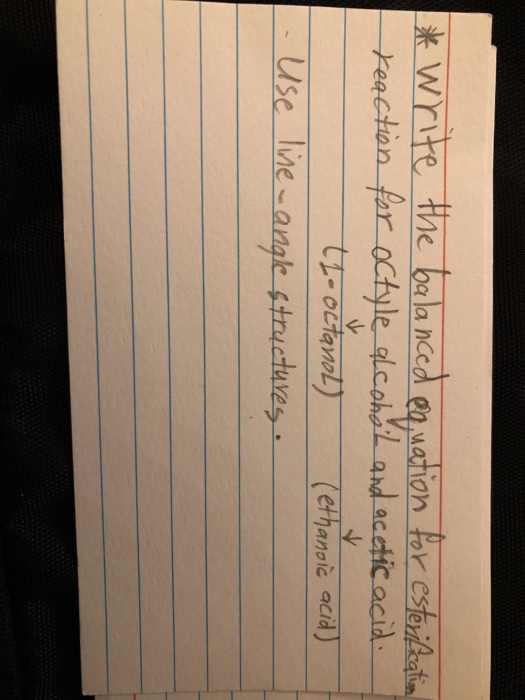 * Write the balanced equation for esterification
reaction for octyle alcohol and acetic acid.
↓ ↓
(1-octanol) (ethanoic acid)
- Use line-angle structures.